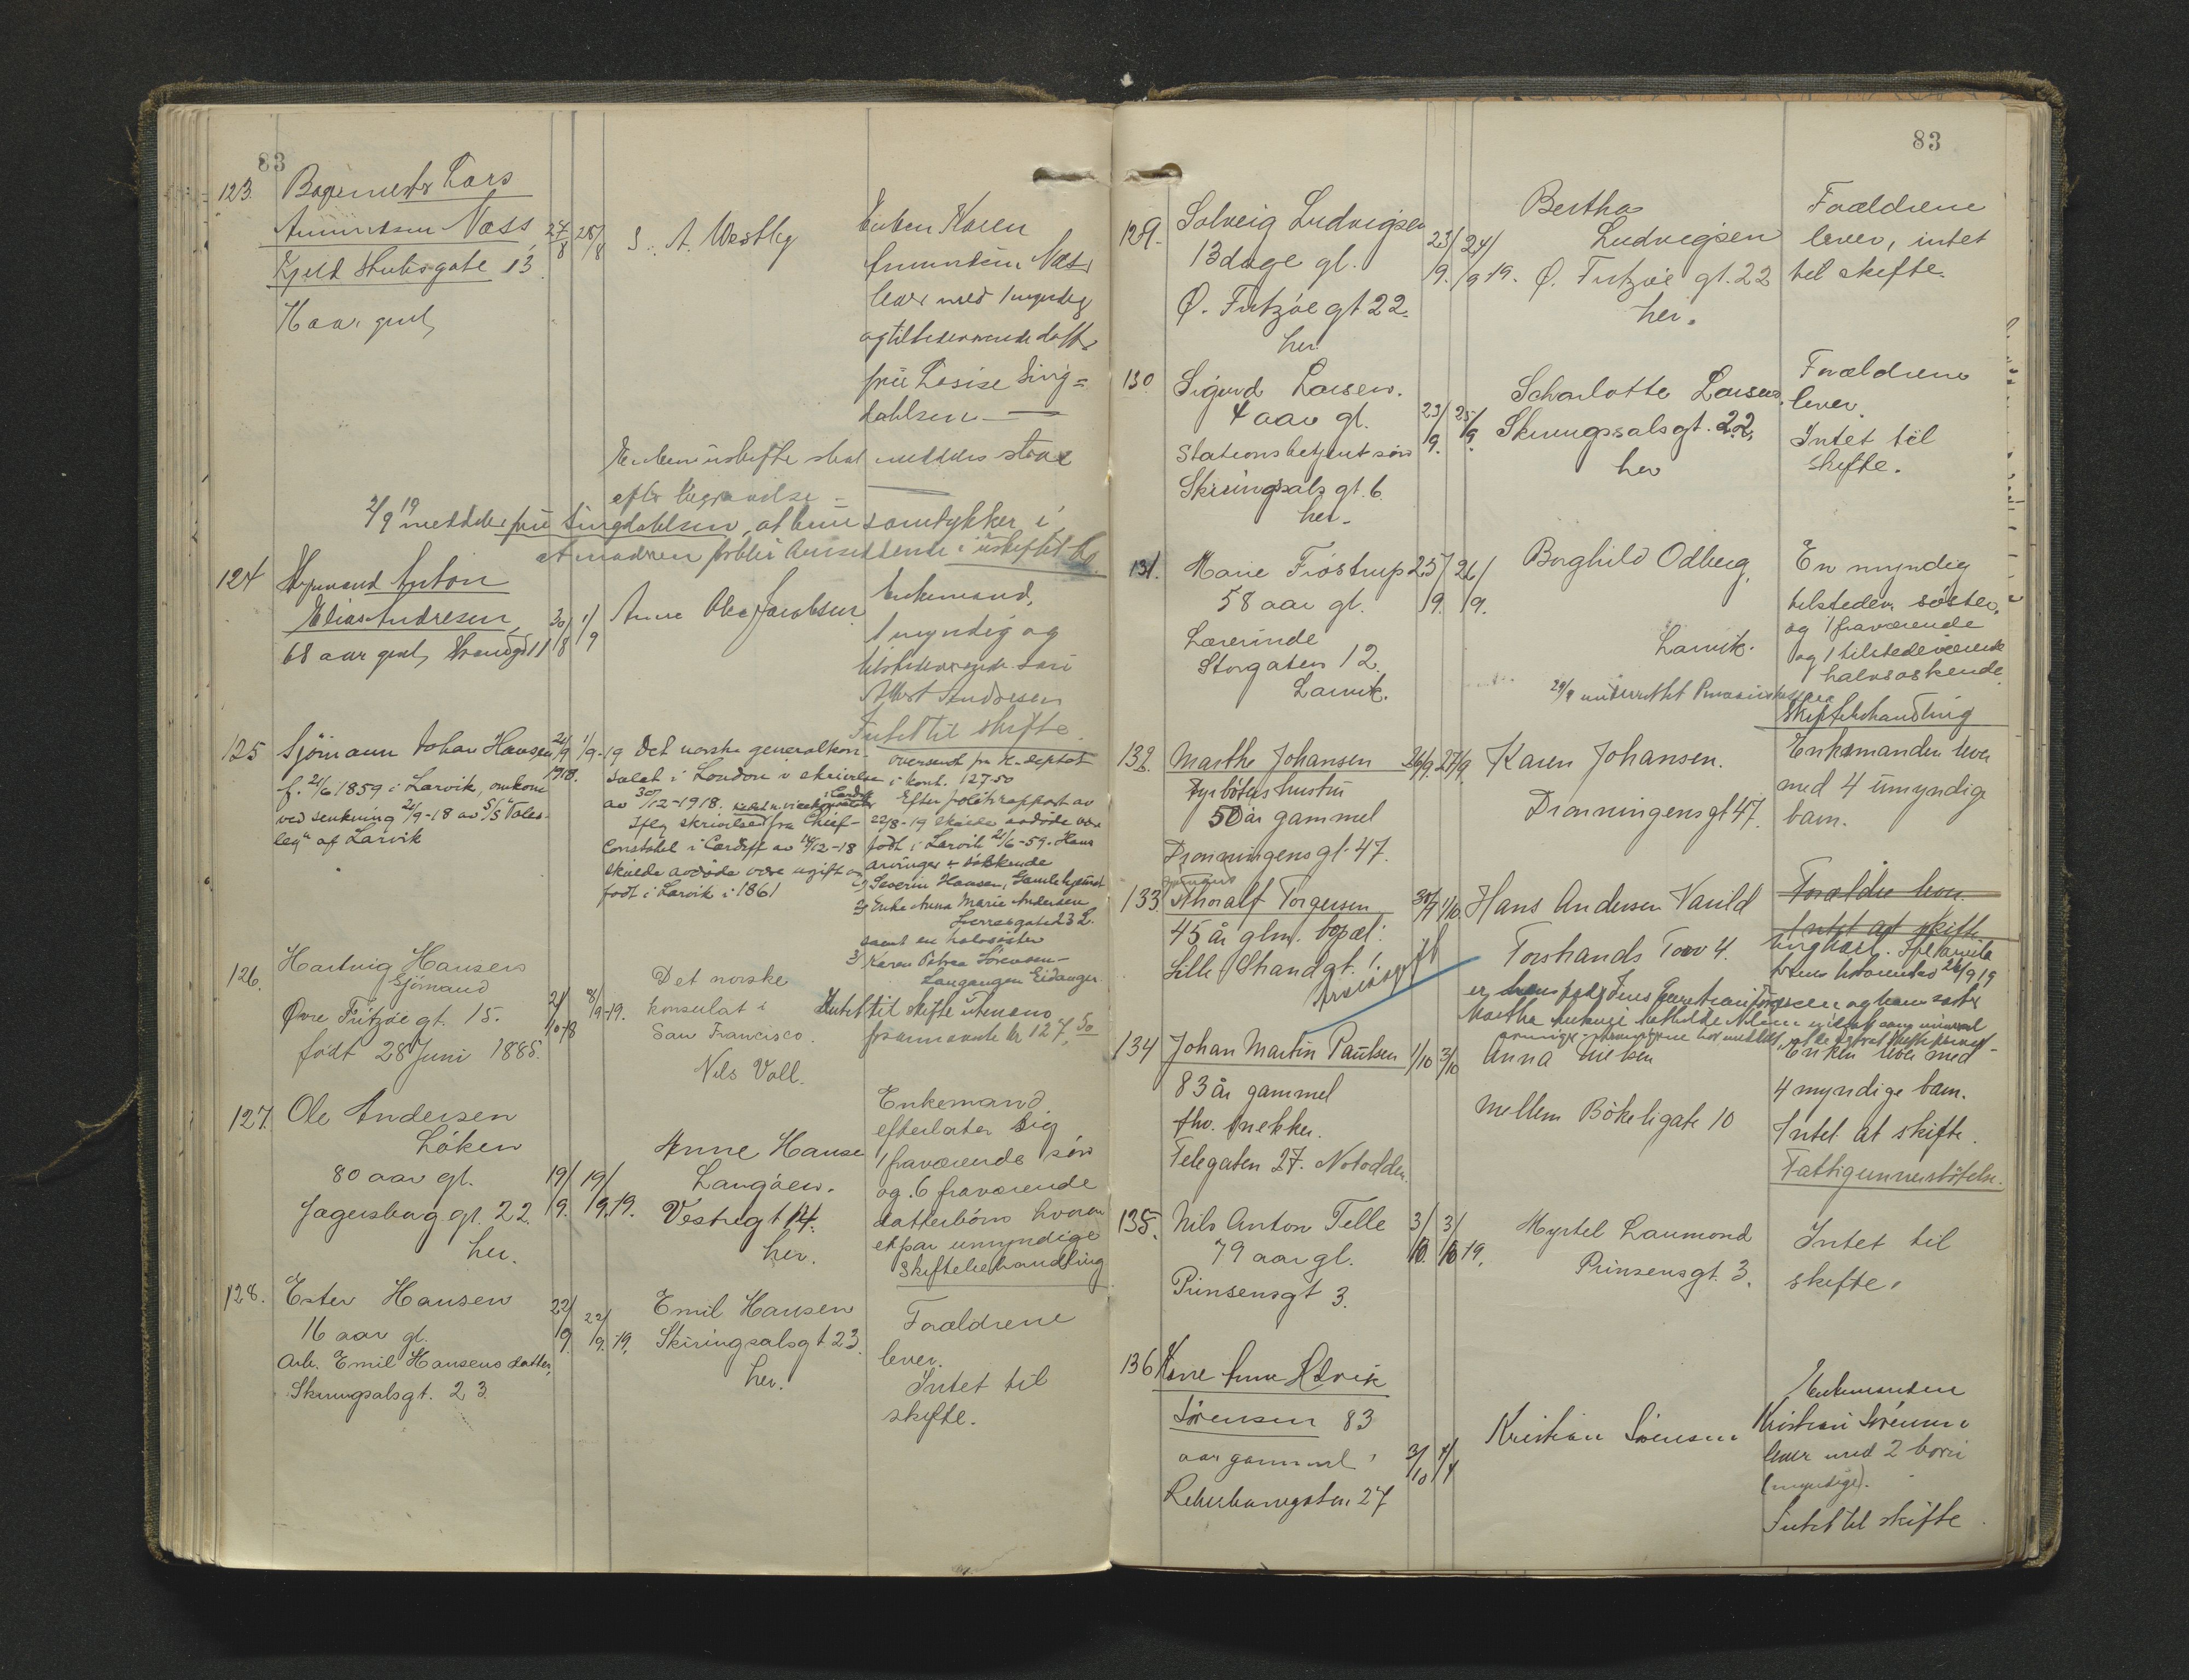 83
123. Bagermester Lars
Amundsen Næss
Kjeld Stubsgate 13
27/8 28/8 S. A. Westby
Enken Karen
Amundsen Næss
lever med 1 myndig
og tilstedeværende datter
frue Lovise Sing=
dahlsen —
Enken i uskifte skal meddeles straks
efter begravelse —
2/9 19 meddeler frue Singdahlsen, at hun samtykker i
at modren forblir hensittende i uskiftet bo
124 Anton
Elias Andresen
68 aar gml, Strandgd 11
30/8 1/9
Anne Olea Jacobsen
Enkemand,
1 myndig og
tilstedeværende søn
Albert Andresen
Intet til skifte.
125 Sjömann Johan Hansen
f. 21/6 1859 i Larvik, omkom
ved senkning 21/9-18 av S/S "Tales-
ley" af Larvik
21/9 1918. 1/9-19
Det norske generalkon
sulat i London i skrivelse
av 30/12-1918.
Iflg skrivelse fra Chief-
Constabel i Cardiff av 14/12-18
skulde avdøde være ugift og
født i Larvik i 1861
oversendt fra H-deptet
i kont. 127-50
Efter politirapport av
22/8-19 skulde avdøde være
født i Larvik 21/6-59. Hans
arvinger er søskende
1) Severin Hansen,
2) Enke Anna Marie Andersen
23 L.
samt en halvsøster
3) Karen Petrea Sörensen—
Langangen Eidanger
126. Hartvig Hansen
Sjømand
Øvre Fritzöe gt. 15.
født 28 Juni 1885.
2/10-18 8/9-19.
Det norske
konsulat i
San Francisco.
Nils Voll.
Intet til skifte
kr 127,50
127. Ole Andersen
Løken
80 aar gl.
Jagersborg gt. 22.
her.
19/9. 19/9.19.
Anne Hanse
Langåen.
Vestregt 14.
her.
Enkemand
efterlater sig
1 fraværende søn
og 6 fraværende
datterbörn hvorav
et par umyndige
Skiftebehandling
128. Ester Hansen
16 aar gl.
Arb. Emil Hansens datter,
Skiringsalsgt. 23.
22/9 22/9.-19.
Emil Hansen
Skiringsalsgt 23.
her.
Forældrene
lever.
Intet til
skifte.
83
129. Solveig Ludvigsen
13 dage gl.
Ø. Fritzöe gt 22.
her.
23/9. 24/9-19.
Bertha
Ludvigsen
Ø. Fritzöe gt. 22
her.
Forældrene
lever, intet
til skifte.
130 Sigurd Larsen.
4 aar gl.
Stationsbetjent søn
Skiringsals gt. 6.
her.
23/9. 25/9
Scharlotte Larsen.
Skiringssalsgt. 22,
her
Forældrene
lever.
Intet til
skifte.
131. Marie Tröstrup
58 aar gl.
Lærerinde
Storgaten 12.
Larvik.
25/9. 26/9.
Borghild Odberg,
Larvik.
29/9 underrettet
En myndig
tilstedev. søster,
og 1 fraværende
og 1 tilstedeværende
halvsøskende.
Skiftebehandling
132. Marthe Johansen
Fyrbøters hustru
50 år gammel
Dronningensgt. 47.
26/9. 27/9.
Karen Johansen.
Dronningensgt 47.
Enkemanden lever
med 4 umyndige
barn.
133. Thoralf Torgersen
45 år glm. bopæl:
Lille Strandgt. 1.
30/9 1/10.
Hans Andersen Varild
Torstrands Torv 4.
Forældre lever.
Intet at skifte
134 Johan Martin Paulsen
83 år gammel
fhv. snekker.
Telegaten 27. Notodden.
1/10 3/10
Anna Nielsen
Mellem Bökeligate 10
Enken lever med
4 myndige barn.
Intet at skifte.
Fattigunnerstøtelse.
135. Nils Anton Telle
79 aar gl.
Prinsensgt 3.
3/10. 3/10 19.
Myrtel Laumond
Prinsensgt. 3.
Intet til
skifte.
136
Sörensen 83
aar gammel
3/10
Kristian Sörensen
Enkemanden
Kristian Sörensen
lever med 2 born
(myndige).
Intet til skifte.